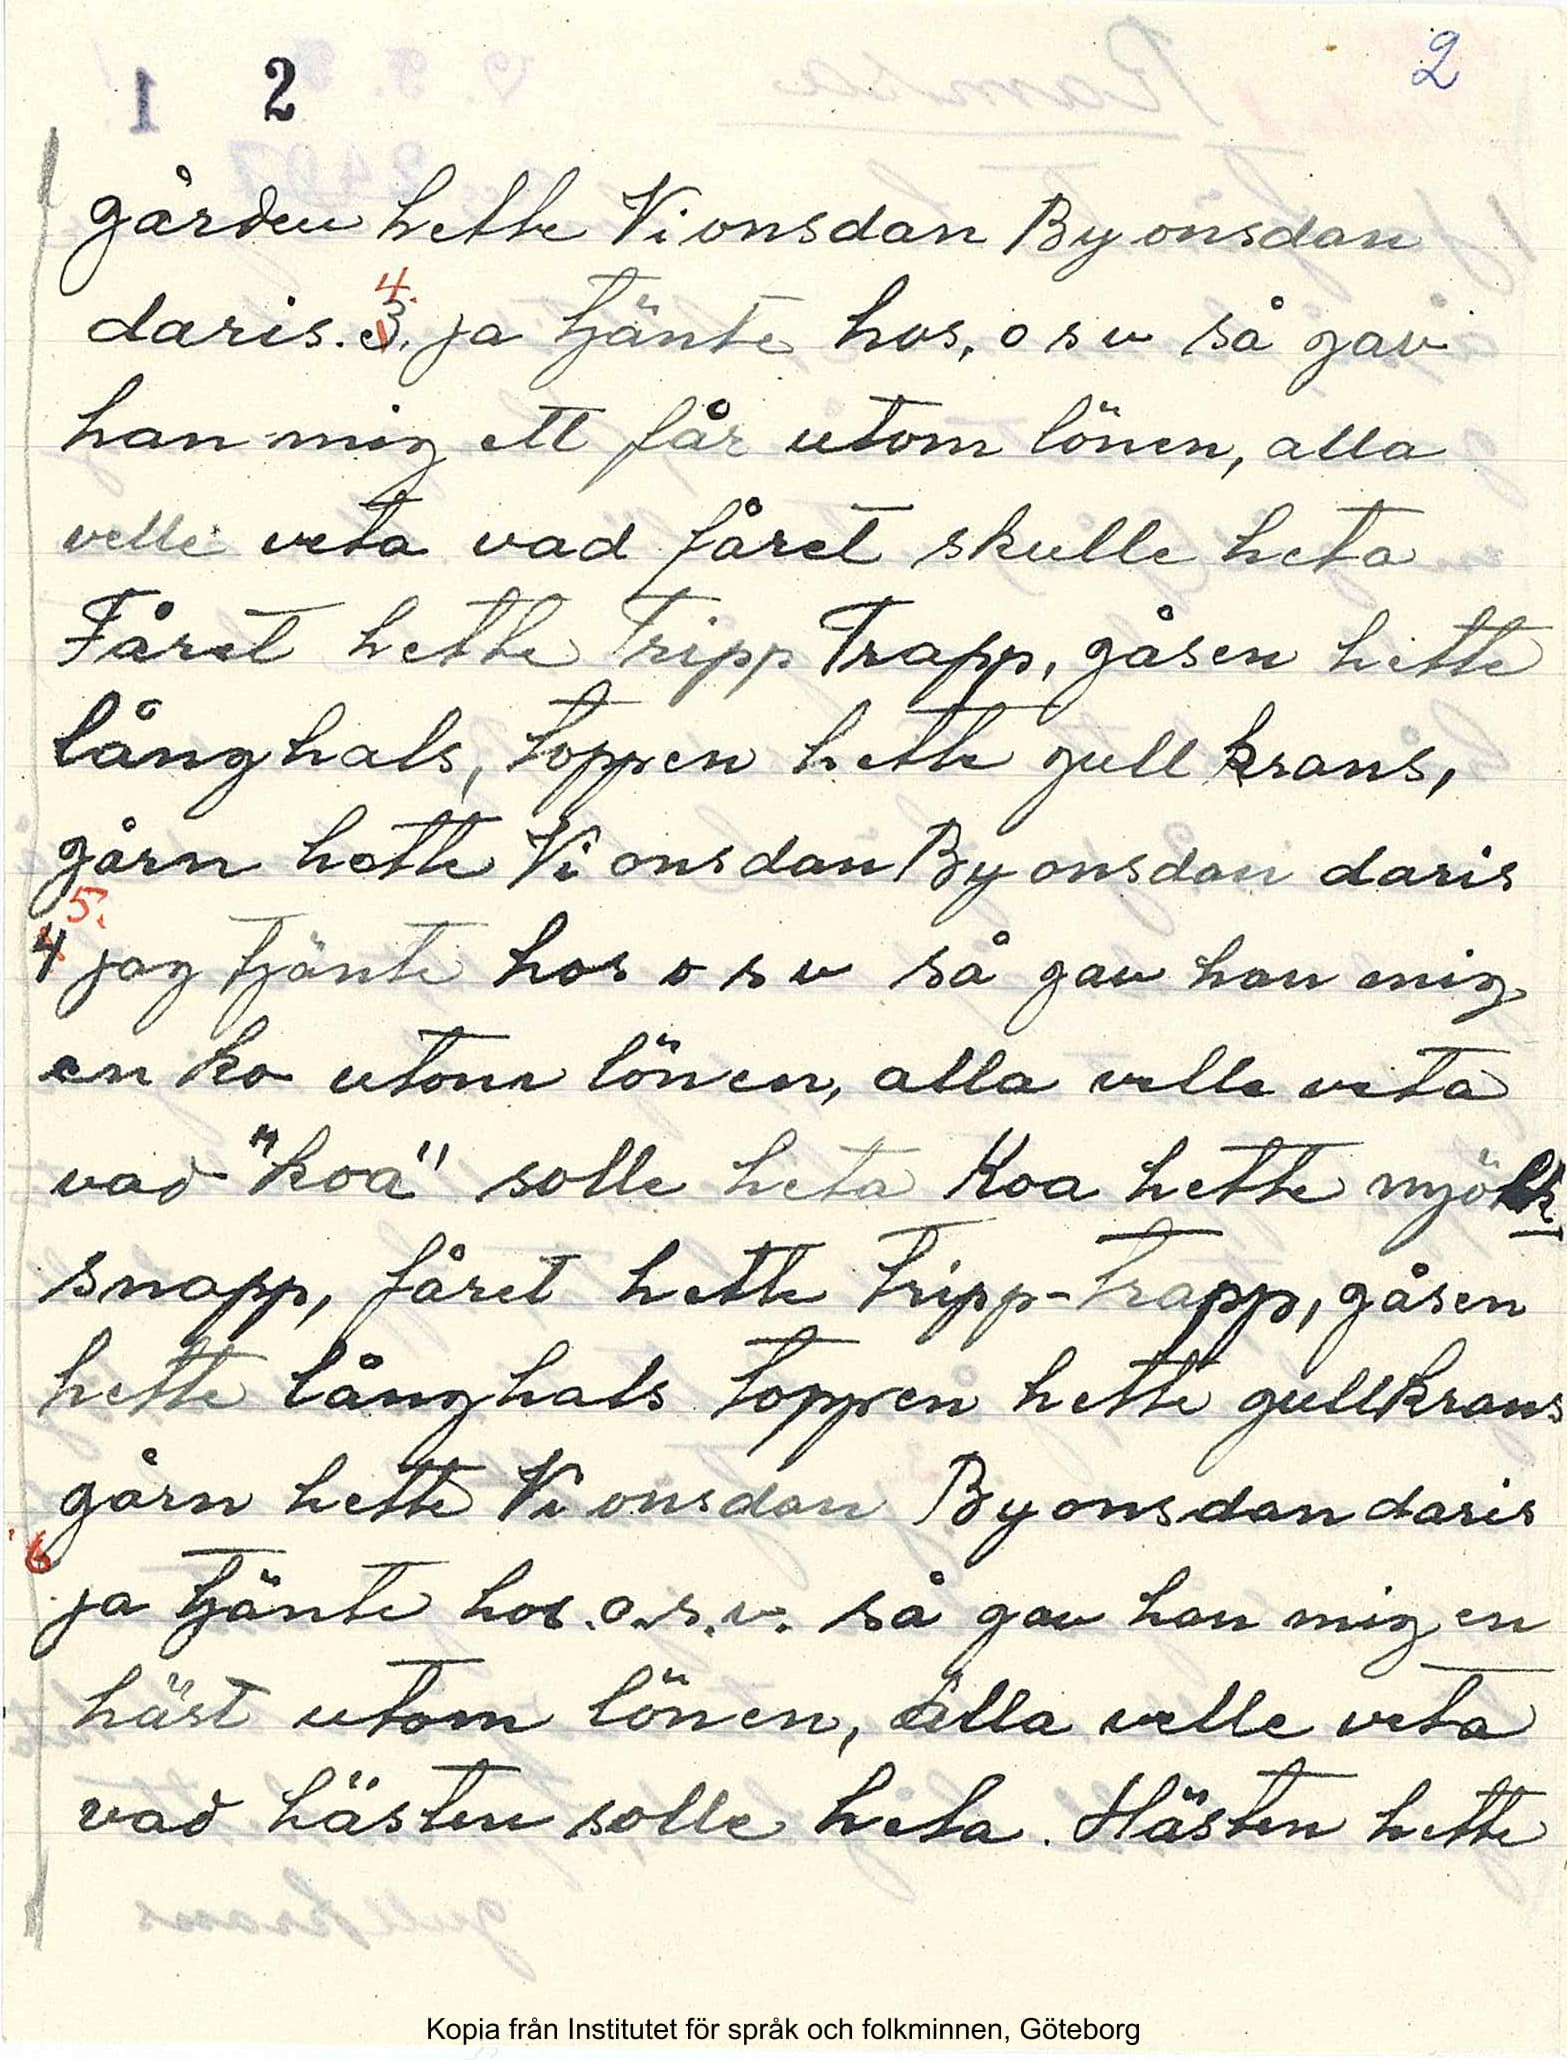 2
2
gården hette Vi onsdan By onsdan
4.
daris. 3. ja tjänte hos, o s v så gav
han mig ett får utom lönen, alla
velle veta vad fåret skulle heta
Fåret hette Tripp Trapp, gåsen hette
långhals, toppen hette gull krans,
gårn hette Vi onsdan By onsdan daris
5.
4 jag tjänte hos o s v så gav han mig
en ko utom lönen, alla velle veta
vad "koa" solle heta Koa hette mjölk
snapp, fåret hette Tripp-Trapp, gåsen
hette långhals toppen hette gullkrans
gårn hette Vi onsdan By onsdan daris
6
ja tjänte hos. o.s.v. så gav han mig en
häst utom lönen, alla velle veta
vad hästen solle heta. Hästen hette
Kopia från Institutet för språk och folkminnen, Göteborg